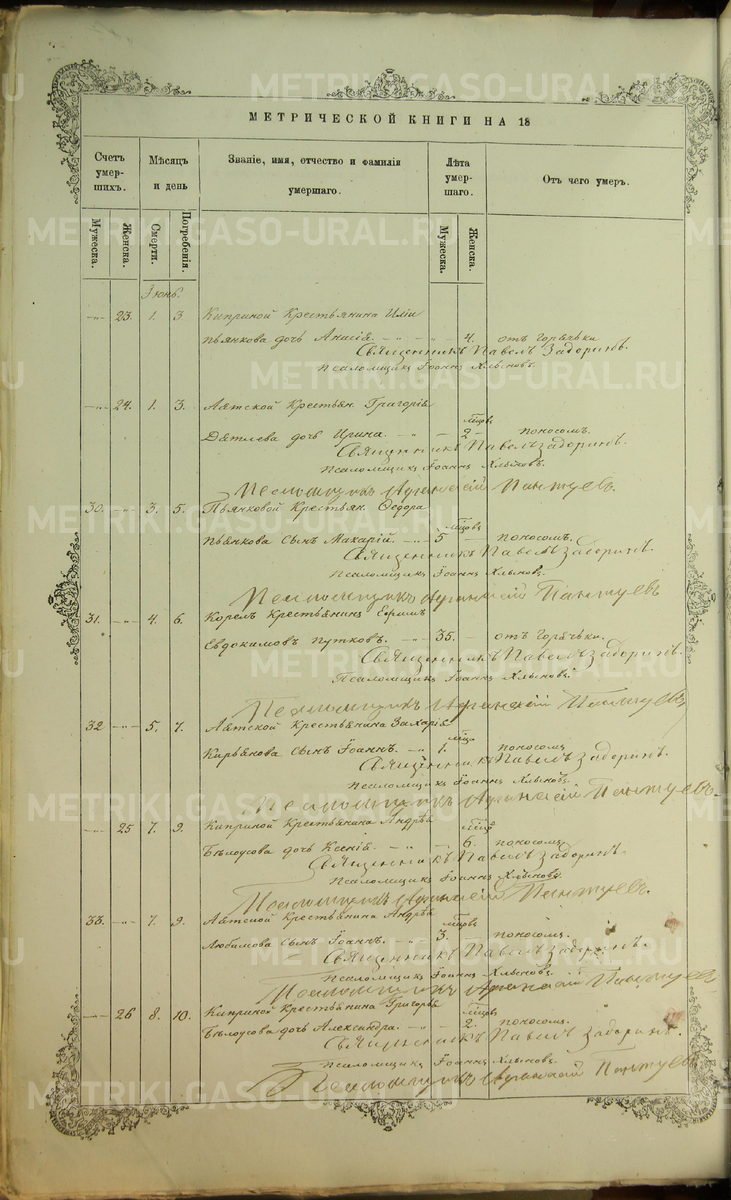 METRIKI.GASO-URAL.RU
МЕТРИЧЕСКОЙ КНИГИ НА 18
Счетъ умерших. Мѣсяцъ и день Званіе, имя, отчество и фамилія умершаго. Лѣта умершаго. Отъ чего умеръ.
Мужеска. Женска. Смерти. Погребенія. Мужеска. Женска.
Іюнь.
-"- 23. 1. 3 Киприной Крестьянина Иліи
Пьянкова дочь Анисія. - " - " 4. отъ горячьки
Священникъ Павелъ Задоринъ.
Псаломщикъ Іоаннъ Хлыновъ.
-"- 24. 1. 3. Аятской Крестьян. Григорія
мѣсцовъ
Дятлева дочь Ирина. - " - 2 - поносомъ.
Священникъ Павелъ Задоринъ.
Псаломщикъ Іоаннъ Хлыновъ.
Псаломщикъ Афанасій Пантуевъ.
30. -"- 3. 5. Пьянковой Крестьян. Ѳедора
мѣсцовъ
Пьянкова сынъ Макарій. - " - 5 - поносомъ.
Священникъ Павелъ Задоринъ.
Псаломщикъ Іоаннъ Хлыновъ.
Псаломщикъ Афанасій Пантуевъ
31. -"- 4. 6. Корелъ Крестьянинъ Ефимъ
Евдокимовъ Путковъ. - " 35. - отъ горячьки.
Священникъ Павелъ Задоринъ.
Псаломщикъ Іоаннъ Хлыновъ.
Псаломщикъ Афанасій Пантуевъ
32 -"- 5. 7. Аятской Крестьянина Захарія
мѣсцъ
Кирьянова сынъ Іоаннъ. - " 1. поносомъ
Священникъ Павелъ Задоринъ.
Псаломщикъ Іоаннъ Хлыновъ.
Псаломщикъ Афанасій Пантуевъ
-"- 25 7. 9. Киприной Крестьянина Андрѣя
Бѣлоусова дочь Ксенія. - " - - 6. поносомъ
Священникъ Павелъ Задоринъ.
Псаломщикъ Іоаннъ Хлыновъ.
Псаломщикъ Афанасій Пантуевъ.
33. -"- 7. 9. Аятской Крестьянина Андрѣя
мѣсцовъ
Любимова сынъ Іоаннъ. - " - 3. поносомъ.
Священникъ Павелъ Задоринъ.
Псаломщикъ Іоаннъ Хлыновъ.
Псаломщикъ Афанасій Пантуевъ
-"- 26 8. 10. Киприной Крестьянина Григорья
мѣсцовъ
Бѣлоусова дочь Александра. - " - - 2. поносомъ.
Священникъ Павелъ Задоринъ.
Псаломщикъ Іоаннъ Хлыновъ.
Псаломщикъ Афанасій Пантуевъ